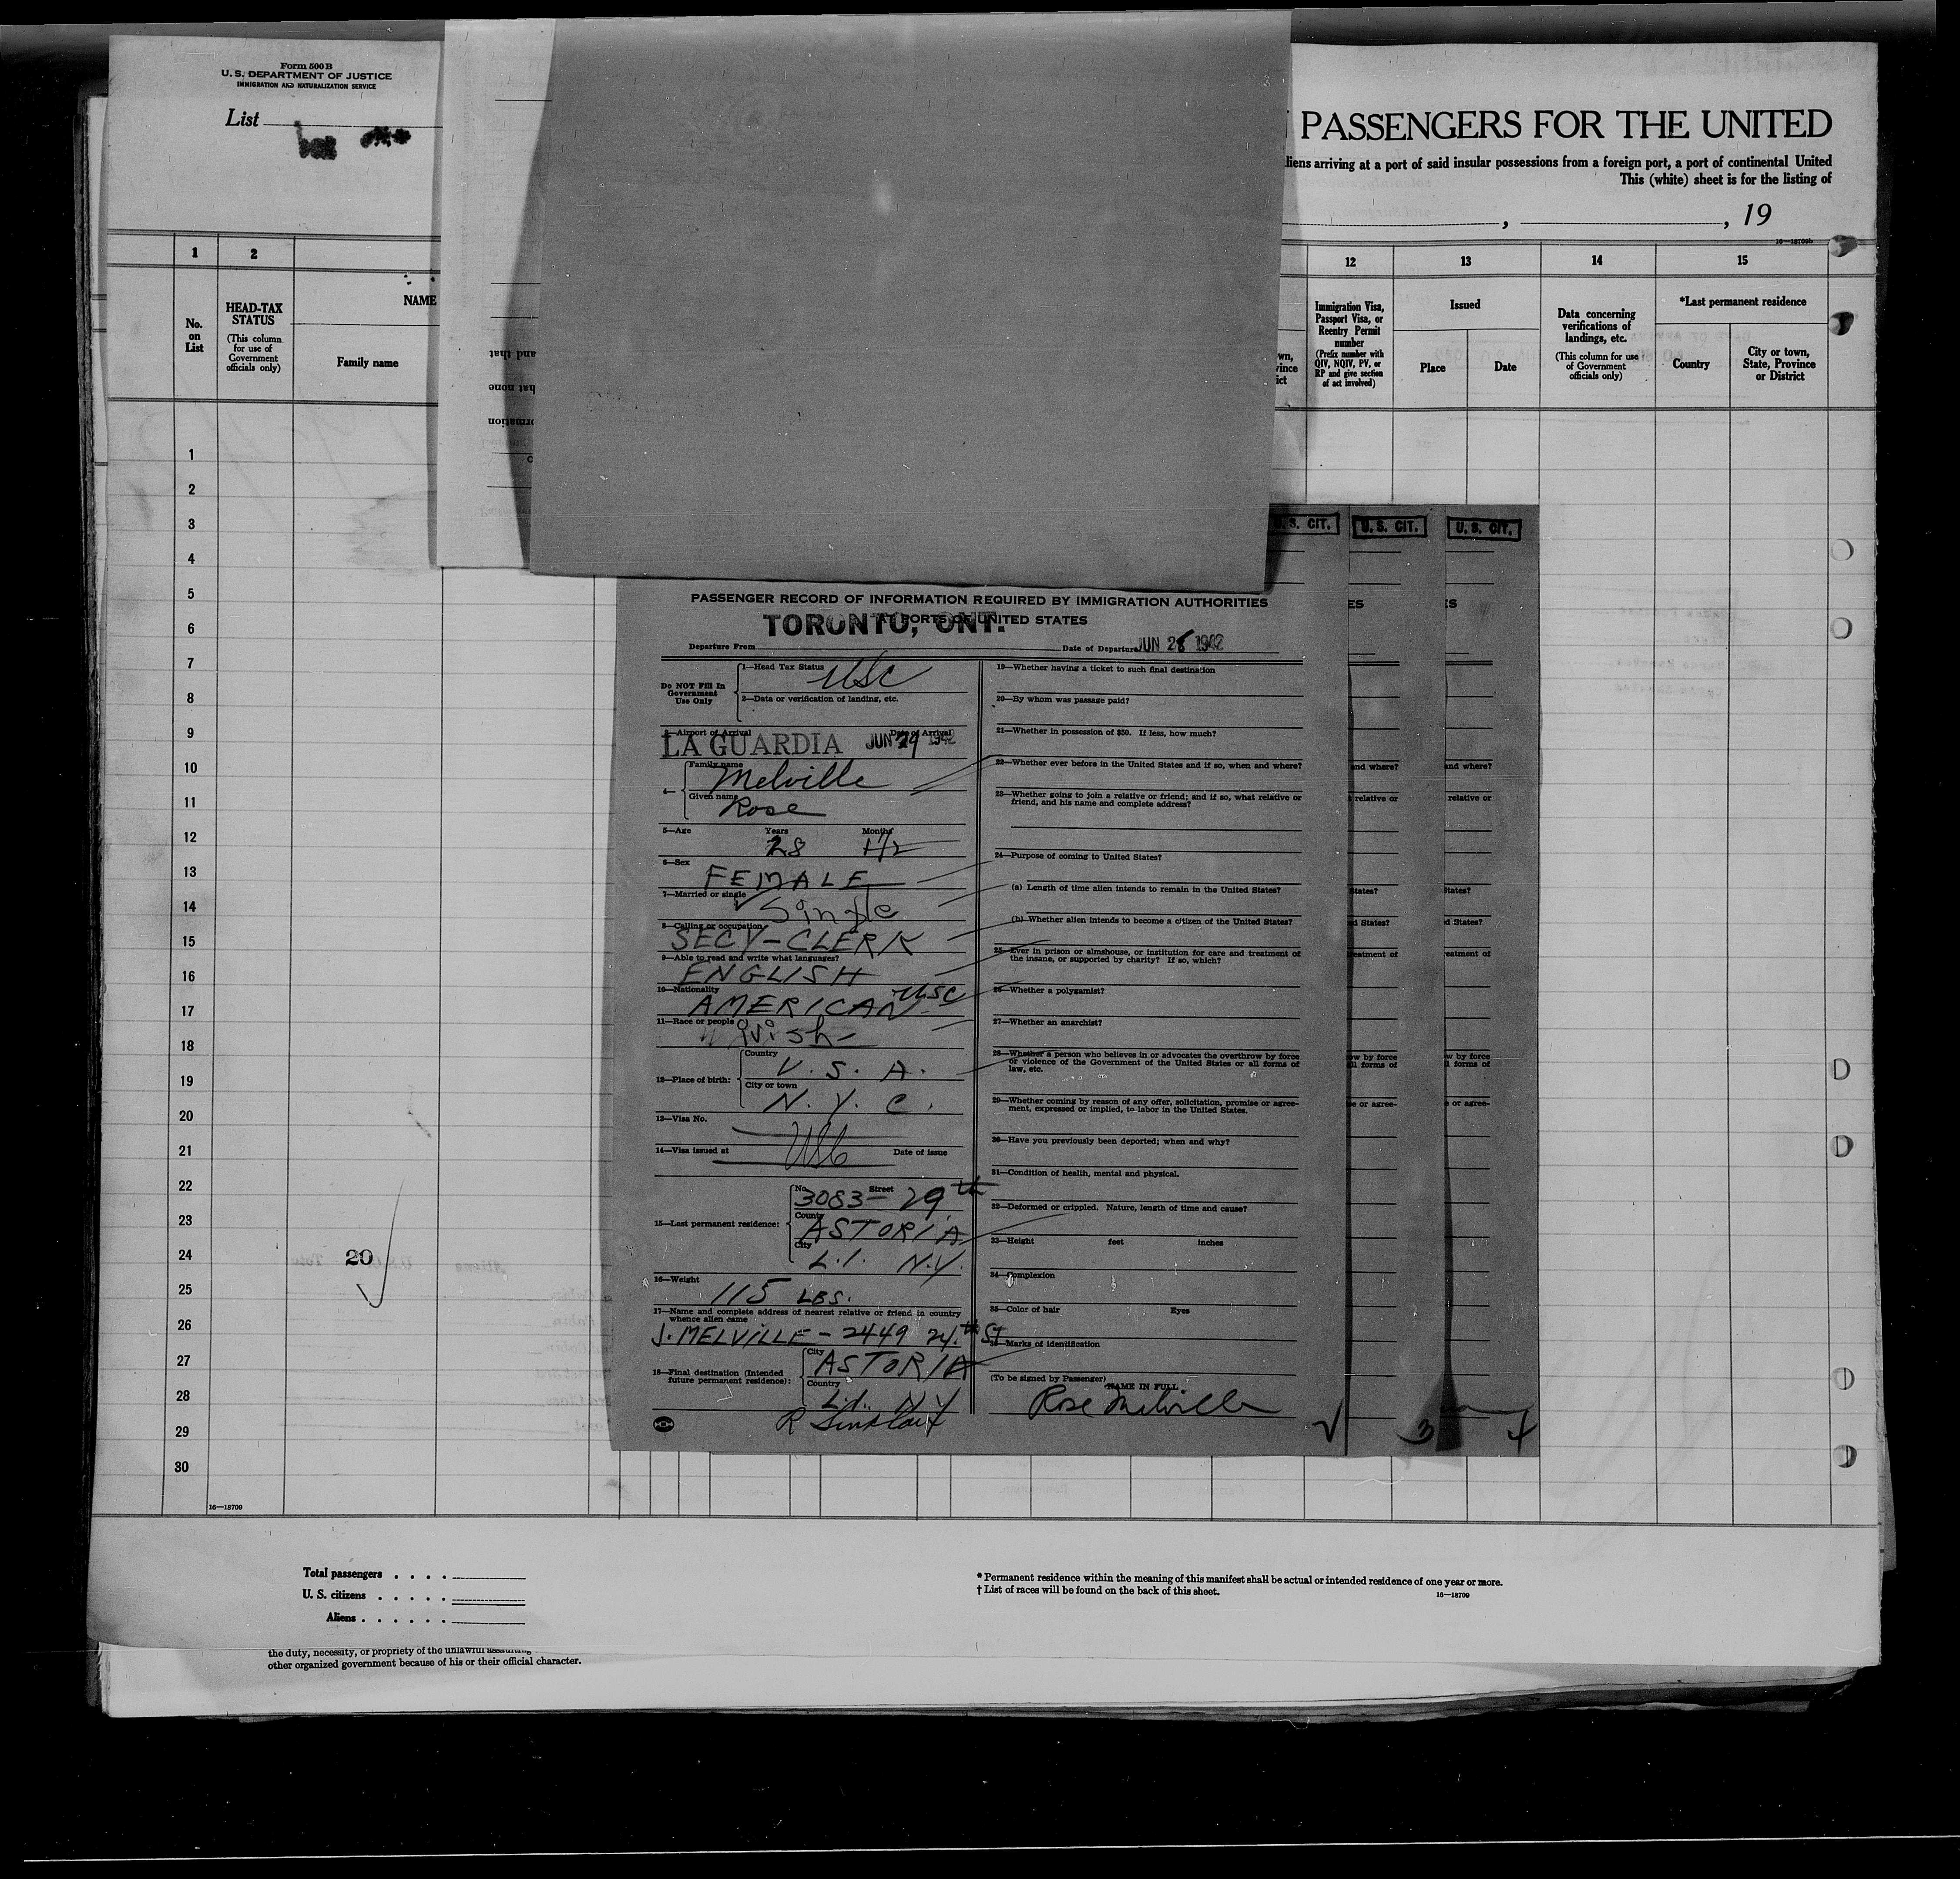 Form 500 B
U. S. DEPARTMENT OF JUSTICE
IMMIGRATION AND NATURALIZATION SERVICE
List
PASSENGERS FOR THE UNITED
liens arriving at a port of said insular possessions from a foreign port, a port of continental United
This (white) sheet is for the listing of
, , 19
1 2 12 13 14 15
No. on List
HEAD-TAX STATUS
(This column for use of Government officials only)
NAME
Family name
and that
hat none
ormation
wn,
vince
ict
Immigration Visa, Passport Visa, or Reentry Permit number
(Prefix number with QIV, NQIV, PV, or RP and give section of act involved)
Issued
Place
Date
Data concerning verifications of landings, etc.
(This column for use of Government officials only)
*Last permanent residence
Country
City or town, State, Province or District
1
2
3
4
5
6
7
8
9
10
11
12
13
14
15
16
17
18
19
20
21
22
23
24
25
26
27
28
29
30
20
16—18709
U. S. CIT.
U. S. CIT.
U. S. CIT.
PASSENGER RECORD OF INFORMATION REQUIRED BY IMMIGRATION AUTHORITIES
AT PORTS OF UNITED STATES
TORONTO, ONT.
Departure From
Date of Departure JUN 28 1942
Do NOT Fill In Government Use Only
1—Head Tax Status USC
2—Data or verification of landing, etc.
3—Airport of Arrival Date of Arrival
LA GUARDIA JUN 29 1942
4—
Family name Melville
Given name Rose
5—Age Years 28 Months 1/2
6—Sex
FEMALE
7—Married or single
Single
8—Calling or occupation
SECY-CLERK
9—Able to read and write what languages?
ENGLISH
10—Nationality
AMERICAN USC
11—Race or people
12—Place of birth:
Country U. S. A.
City or town
N. Y. C.
13—Visa No.
14—Visa issued at USC Date of issue
15—Last permanent residence:
No. Street
3083-29th
County
ASTORIA
City
L.I. N.Y.
16—Weight
115 LBS.
17—Name and complete address of nearest relative or friend in country whence alien came
J. MELVILLE - 2449 24th ST
18—Final destination (Intended future permanent residence):
City ASTORIA
Country
L.I. N Y
19—Whether having a ticket to such final destination
20—By whom was passage paid?
21—Whether in possession of $50. If less, how much?
22—Whether ever before in the United States and if so, when and where?
23—Whether going to join a relative or friend; and if so, what relative or friend, and his name and complete address?
24—Purpose of coming to United States?
(a) Length of time alien intends to remain in the United States?
(b) Whether alien intends to become a citizen of the United States?
25—Ever in prison or almshouse, or institution for care and treatment of the insane, or supported by charity? If so, which?
26—Whether a polygamist?
27—Whether an anarchist?
28—Whether a person who believes in or advocates the overthrow by force or violence of the Government of the United States or all forms of law, etc.
29—Whether coming by reason of any offer, solicitation, promise or agreement, expressed or implied, to labor in the United States.
30—Have you previously been deported; when and why?
31—Condition of health, mental and physical.
32—Deformed or crippled. Nature, length of time and cause?
33—Height feet inches
34—Complexion
35—Color of hair Eyes
36—Marks of identification
(To be signed by Passenger)
NAME IN FULL
Rose Melville
R Sinclair
3
4
Total passengers . . . .
U. S. citizens . . . . .
Aliens . . . . . .
* Permanent residence within the meaning of this manifest shall be actual or intended residence of one year or more.
† List of races will be found on the back of this sheet.
16—18709
the duty, necessity, or propriety of the unlawful assaulting
other organized government because of his or their official character.